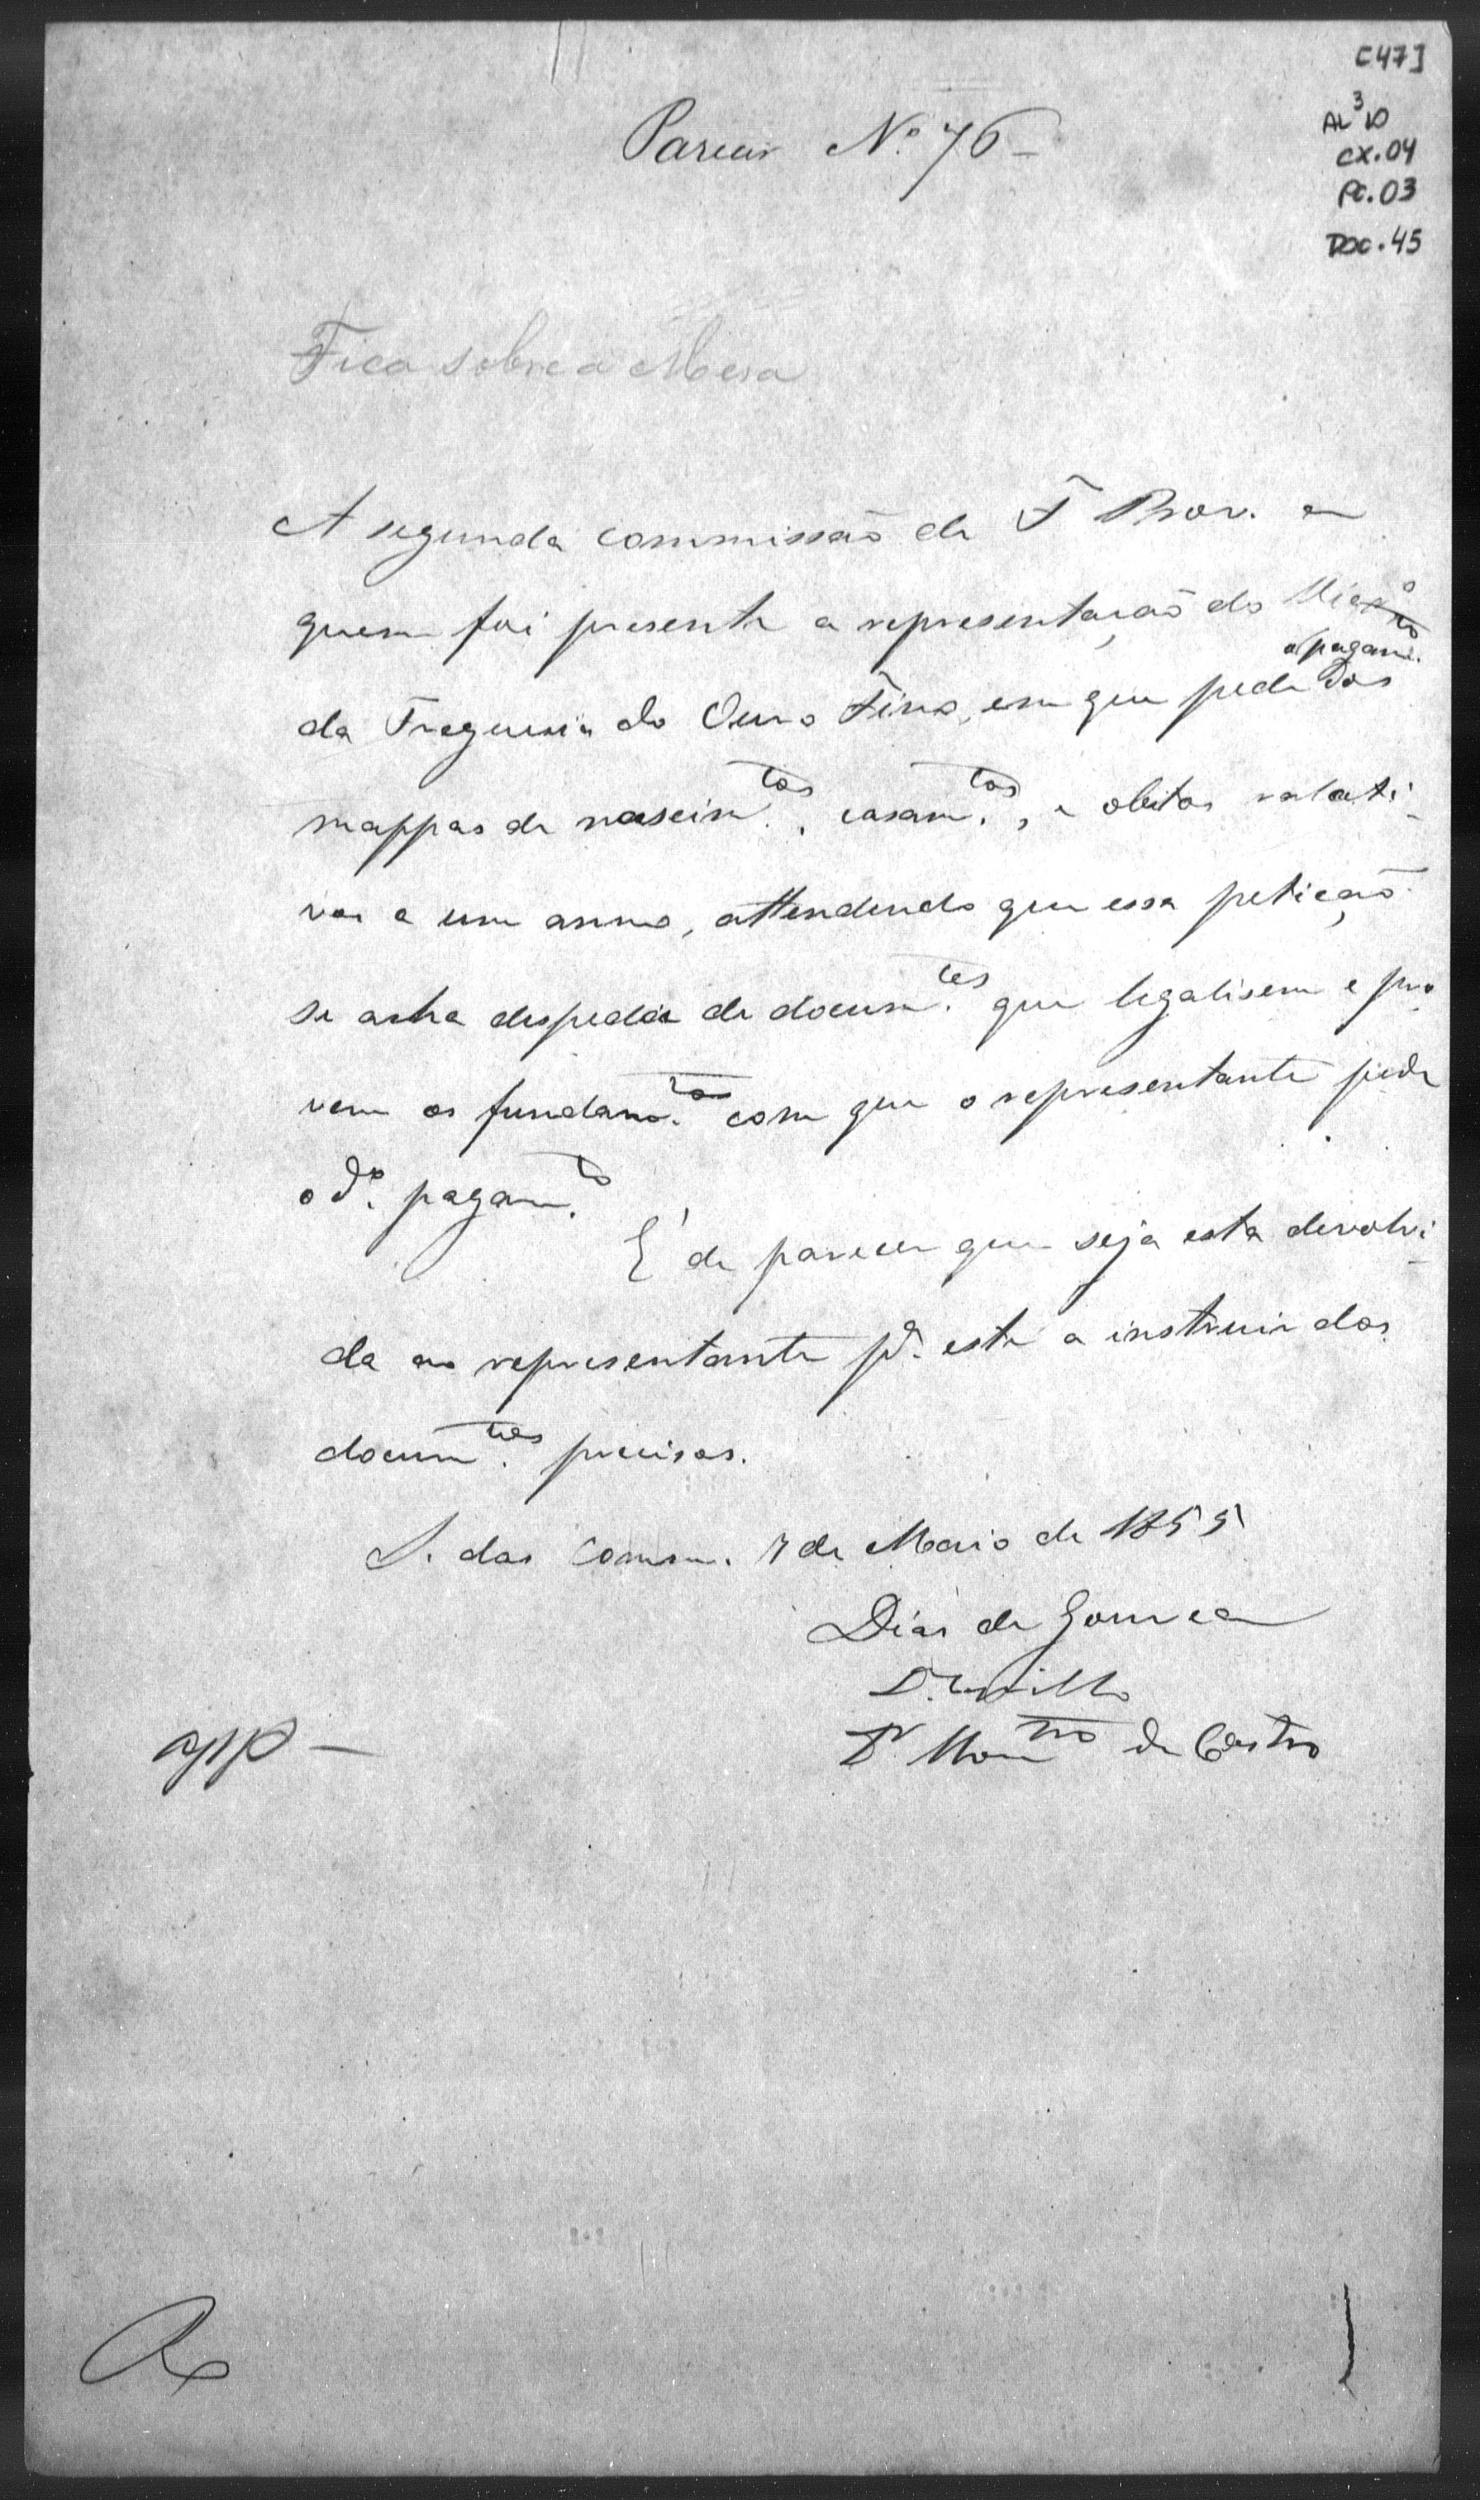 [47]
AL³D
CX.04
PC.03
DOC.45
Parecer Nº 76 –
Fica sobre a Mesa
A segunda commissão de F Prov. a
quem foi presente a representação do
o pagamto.
da Freguesia do Ouro Fino, em que pede dos
mappas de nascimtos., casamtos., e obitos relati-
vos a um anno, attendendo que essa petição
se acha despeda de documtes. que legalisem e pro
vem os fundamtos. com que o representante pede
o do. pagamto.
É de parecer que seja esta devolvi-
da ao representante pa. este a instruir dos
documtes. precisos.
S. das Comm. 7 de Maio de 1855
Dias de Gouvea
Dr Montro de Castro
app –